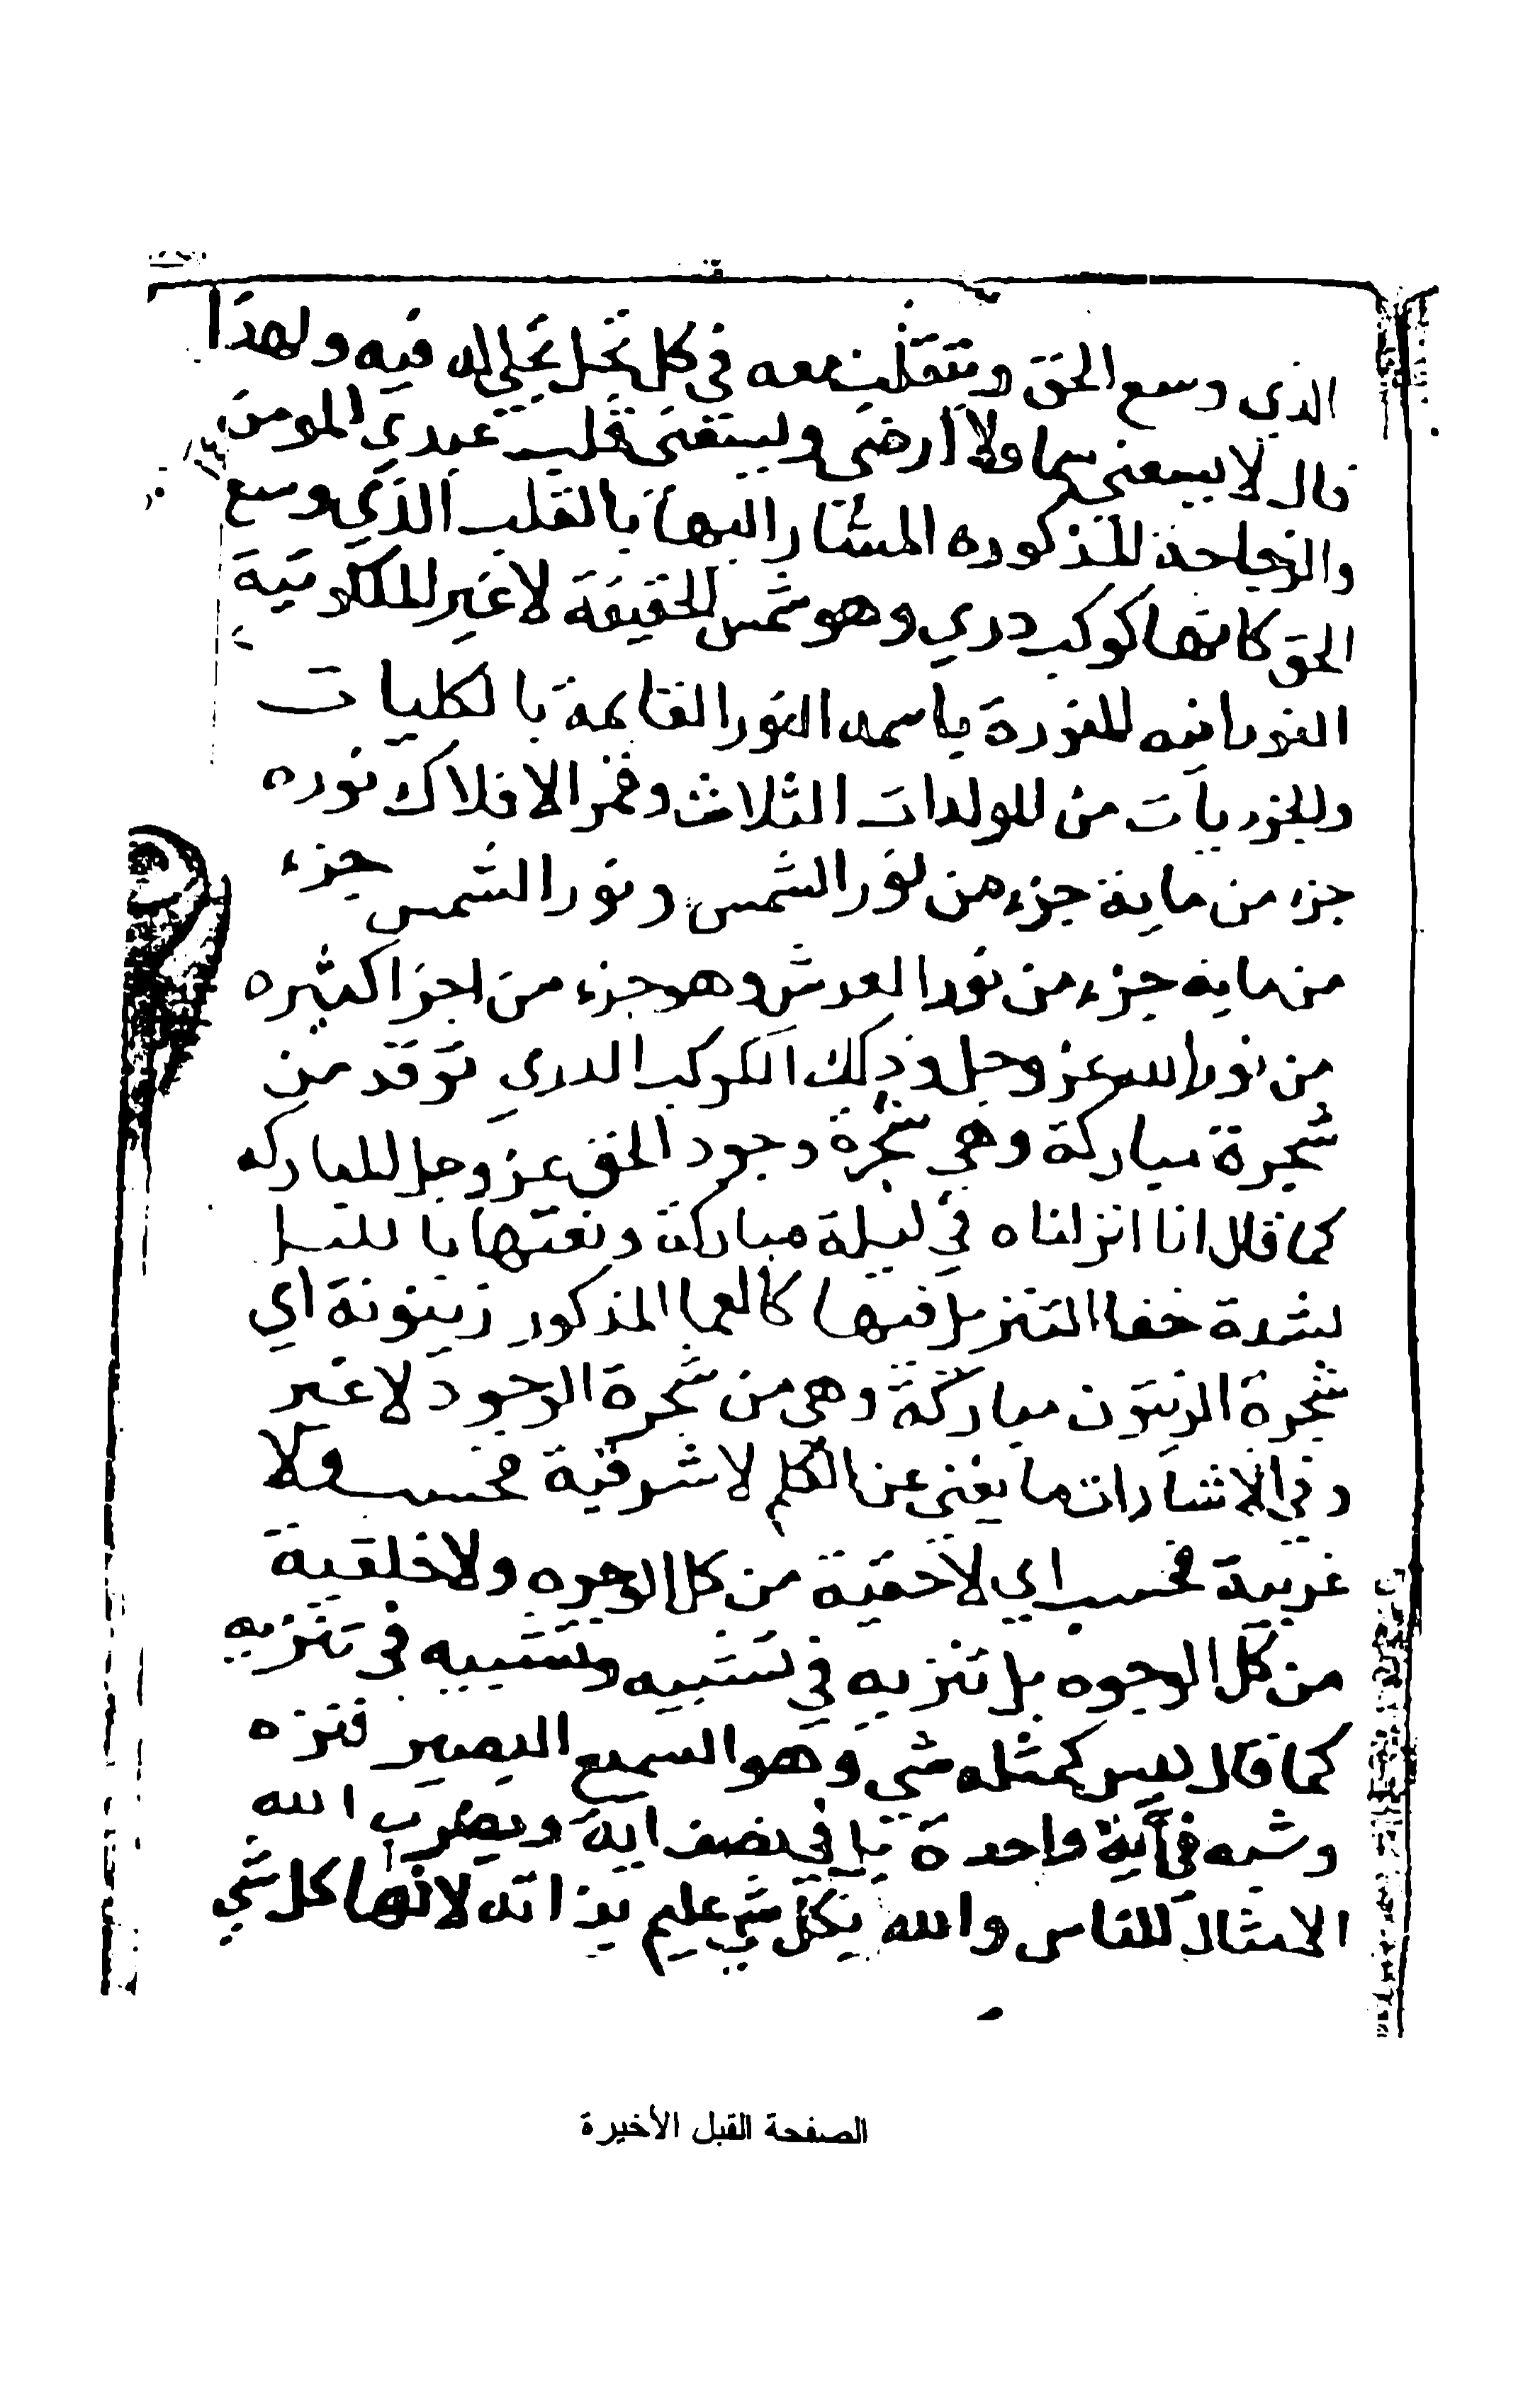 الذي وسع الحق ويتقلب معه في كل تجل تجلي له فيه ولهذا
قال لا يسعني سما ولا ارضى ويسعنى قلب عبدي المومن
والزجاجة المذكوره المشار اليها بالقلب الذي وسع
الحق كانها كوكب دري وهو شمس الحقيقة لا غير الملكوتية
النورانيه المنورة باسمه النور القايمة بالكليات
والجزييات من المولدات الثلاث وقمر الافلاك نوره
جزء من ماية جزء من نور الشمس ونور الشمس جزء
من مايه جزء من نور العرش وهو جزء من اجزا كثيره
من نور الله عز وجل وذلك الكوكب الدري توقد من
شجرة مباركة وهي شجرة وجود الحق عز وجل المباركه
كما قال انا انزلناه في ليلة مباركة ونعتها بالليل
لشدة خفا التنزيل فيها كالعما المذكور زيتونة اي
شجرة الزيتون مباركة وهي من شجرة الوجود لا غير
وفي الاشارات ما يغني عن الكلم لا شرقية فحسب ولا
غربية فحسب اي لا حقية من كل الوجوه ولا خلقية
من كل الوجوه بل تنزيه في تشبيه وتشبيه في تنزيه
كما قال ليس كمثله شي وهو السميع البصير فنزه
وشبه في آية واحدة بل في نصف اية ويضرب الله
الامثال للناس والله بكل شي عليم بذاته لانها كل شي
الصفحة القبل الأخيرة